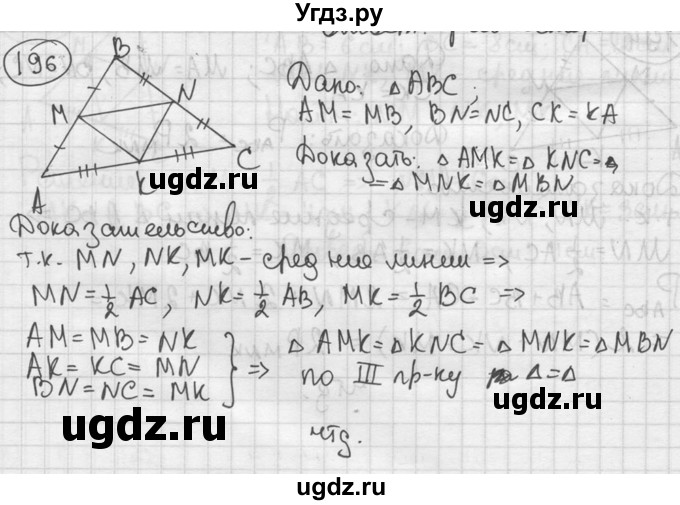 Угдз.ру
196
B
M
N
A
K
C
Дано: △ ABC,
AM = MB, BN = NC, CK = KA
Доказать: △ AMK = △ KNC = △
= △ MNK = △ MBN
ugdz.ru
Доказательство:
т.к. MN, NK, MK - средние линии =>
MN = 1/2 AC, NK = 1/2 AB, MK = 1/2 BC =>
AM = MB = NK
AK = KC = MN
BN = NC = MK
} => △ AMK = △ KNC = △ MNK = △ MBN
по III пр-ку △ = △
ugdz.ru
ugdz.ru
чтд.
ugdz.ru